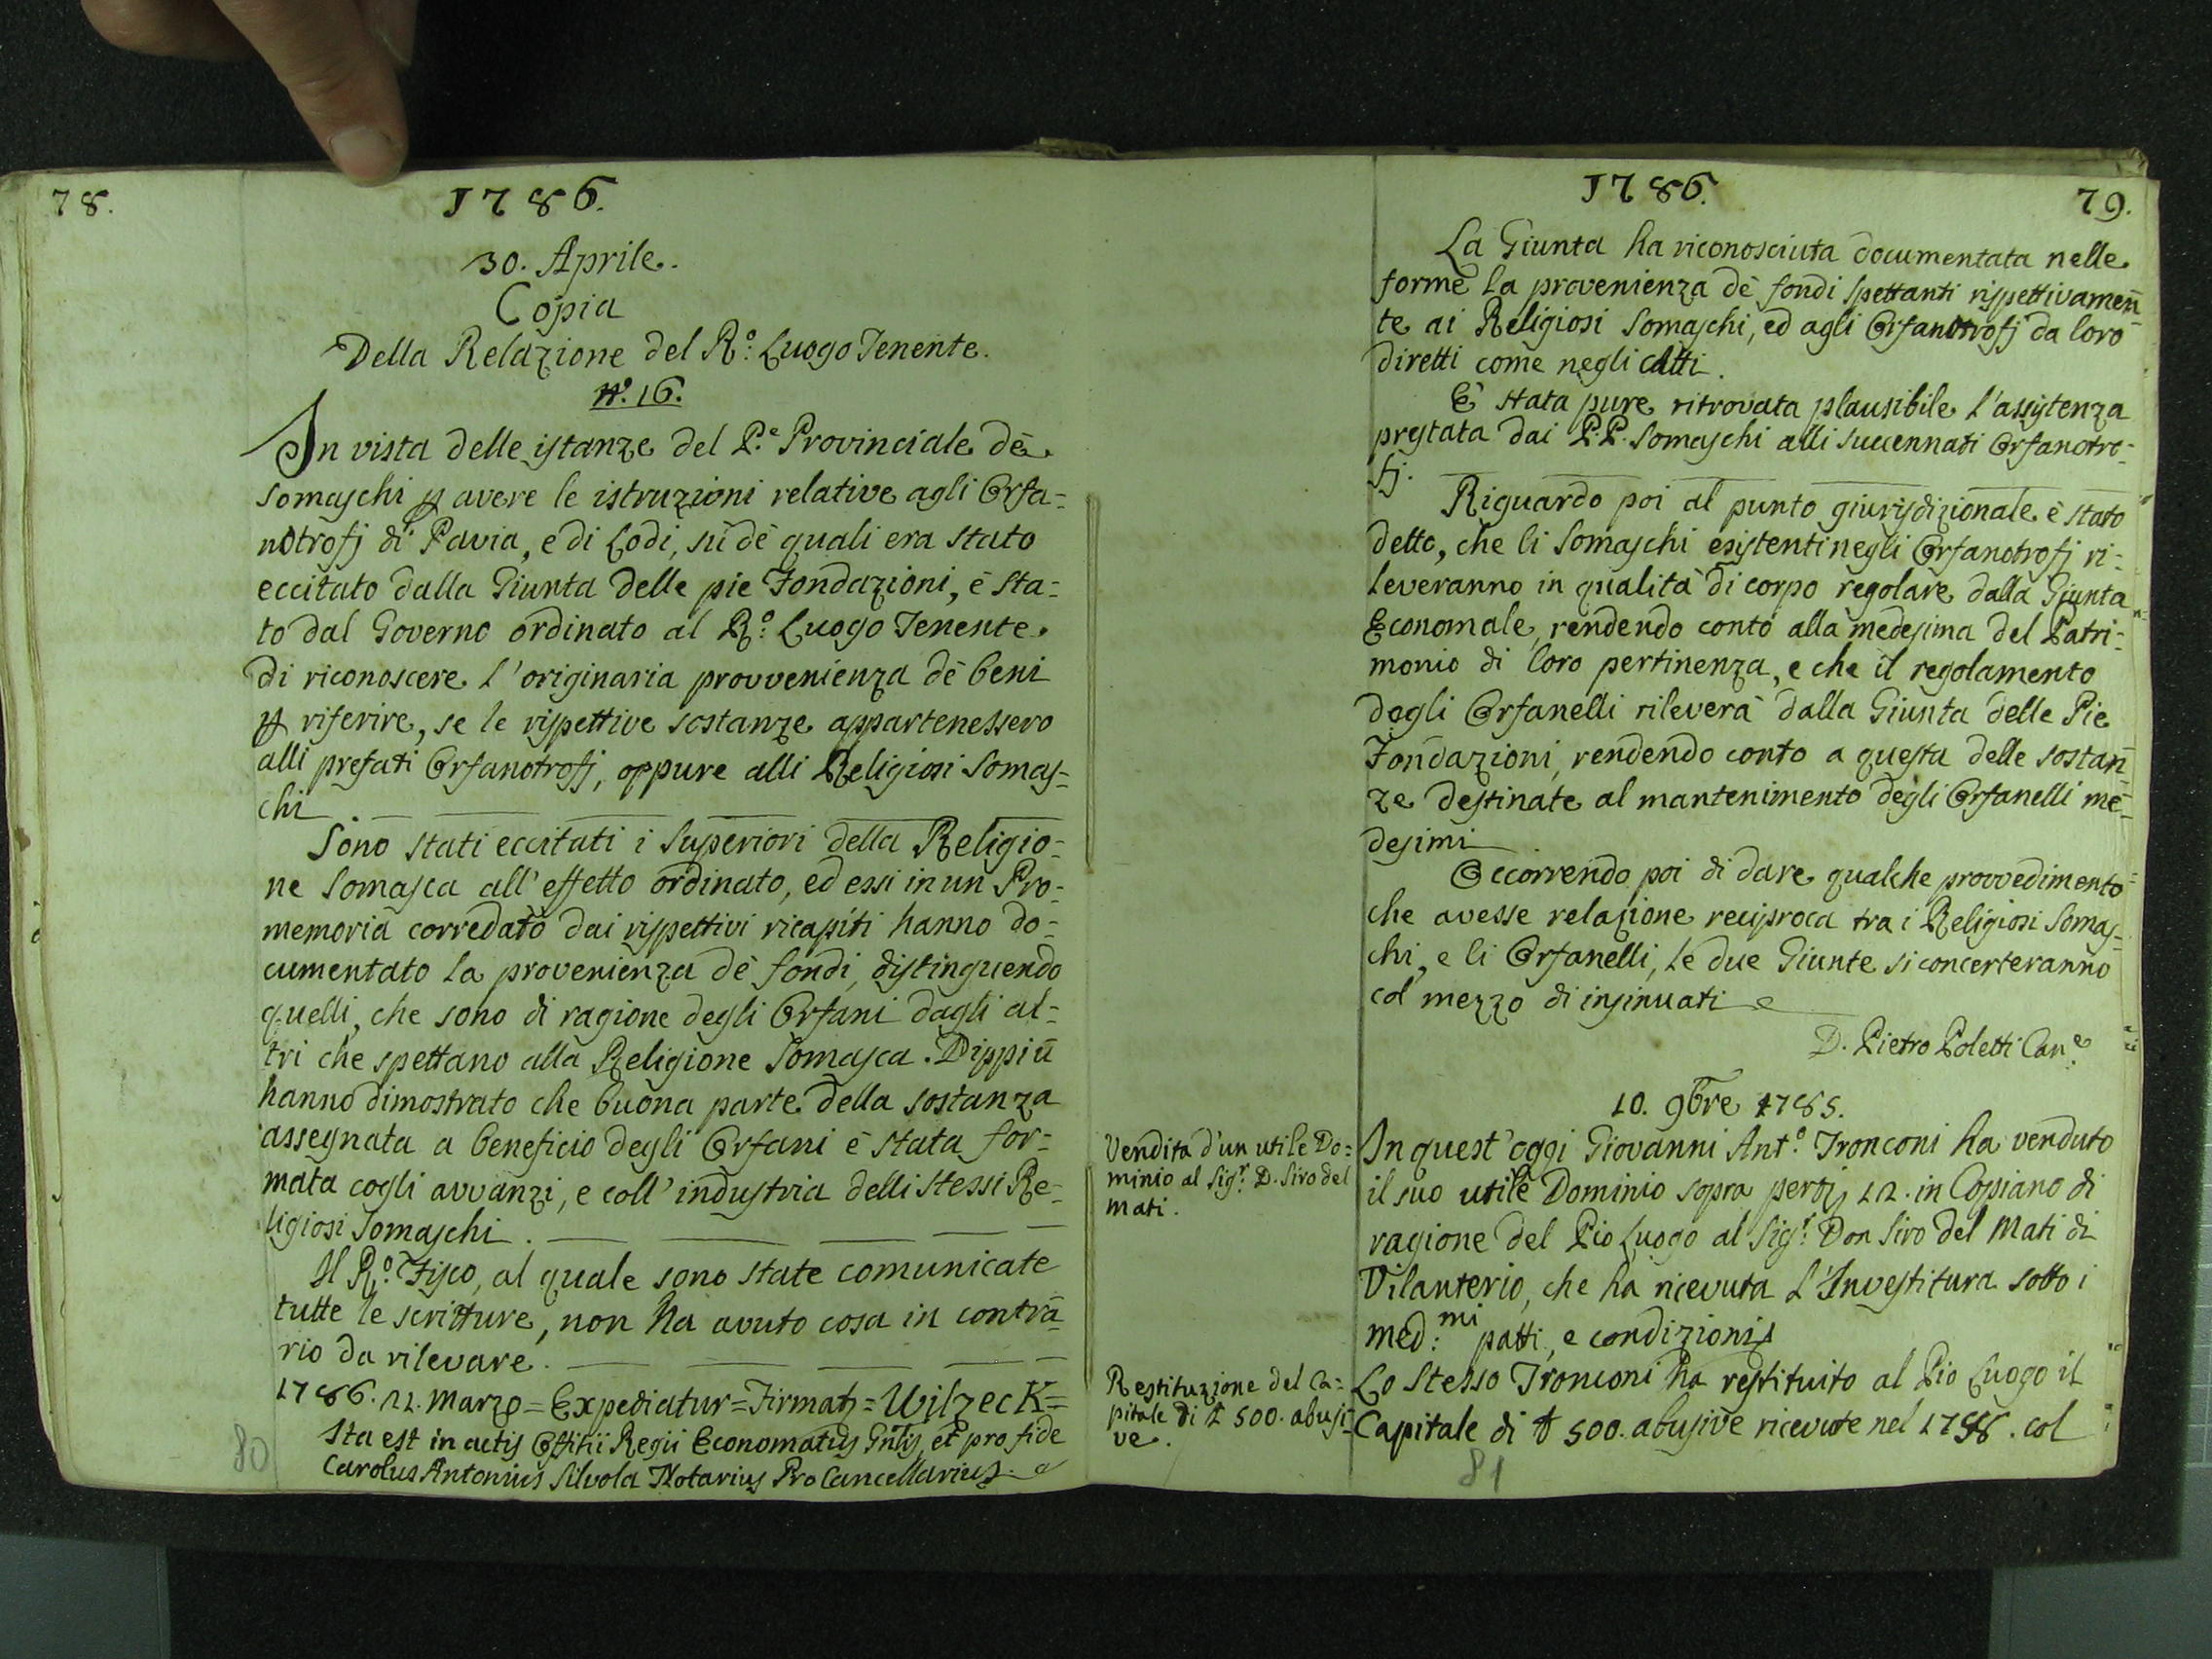 78.
1786.
30. Aprile.
Copia
Della Relazione del R.º Luogo Tenente.
N.º 16.
In vista delle istanze del P.e Provinciale de'
Somaschi p avere le istruzioni relative agli Orfa=
notrofj di Pavia, e di Lodi, sù de' quali era stato
eccitato dalla Giunta delle pie Fondazioni, è sta=
to dal Governo ordinato al R.º Luogo Tenente
di riconoscere l'originaria provvenienza de' beni
p riferire, se le rispettive sostanze appartenessero
alli prefati Orfanotrofj, oppure alli Religiosi Somas=
chi
Sono stati eccitati i Superiori della Religio=
ne Somasca all'effetto ordinato, ed essi in un Pro=
memoria corredato dai rispettivi ricapiti hanno do=
cumentato la provenienza de' fondi, distinguendo
quelli, che sono di ragione degli Orfani dagli al=
tri che spettano alla Religione Somasca. Dippiù
hanno dimostrato che buona parte della sostanza
assegnata a beneficio degli Orfani è stata for=
mata cogli avvanzi, e coll'industria delli stessi Re=
ligiosi Somaschi.
Il R.º Fisco, al quale sono state comunicate
tutte le scritture, non ha avuto cosa in contra=
rio da rilevare.
1786. 12. Marzo = Expediatur = Firmatz = Wilzeck =
Ita est in actis Offitii Regii Economatus Gnlis, et pro fide
Carolus Antonius Silvola Notarius Pro Cancellarius.
80
1786.
79.
La Giunta ha riconosciuta documentata nelle
forme la provenienza de' fondi spettanti rispettivamen=
te ai Religiosi Somaschi, ed agli Orfanotrofj da loro
diretti come negli Atti.
È stata pure ritrovata plausibile l'assistenza
prestata dai P.P. Somaschi alli succennati Orfanotro=
fj.
Riguardo poi al punto giurisdizionale è stato
detto, che li Somaschi esistenti negli Orfanotrofj ri=
leveranno in qualità di corpo regolare dalla Giunta
Economale, rendendo conto alla medesima del Patri=
monio di loro pertinenza, e che il regolamento
degli Orfanelli rileverà dalla Giunta delle Pie
Fondazioni, rendendo conto a questa delle sostan=
ze destinate al mantenimento degli Orfanelli me=
desimi
Occorrendo poi di dare qualche provvedimento
che avesse relazione reciproca tra i Religiosi Somas=
chi, e li Orfanelli, le due Giunte si concerteranno
col mezzo di insinuati
D. Pietro Poletti Can.e
10. 9bre 1785.
Vendita d'un utile Do=
minio al Sig.r D. Siro del
Mati.
In quest'oggi Giovanni Ant.º Tronconi ha venduto
il suo utile Dominio sopra pertz 12. in Copiano di
ragione del Pio Luogo al Sig.r Don Siro del Mati di
Vilanterio, che ha ricevuta l'Investitura sotto i
med:mi patti, e condizioni
Restituzione del Ca=
pitale di £ 500. abusi=
ve.
Lo stesso Tronconi ha restituito al Pio Luogo il
Capitale di £ 500. abusive ricevute nel col
81